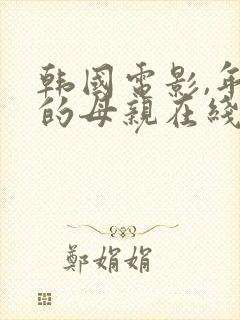 韩國電影,年
的母親在綫
鄭娟娟